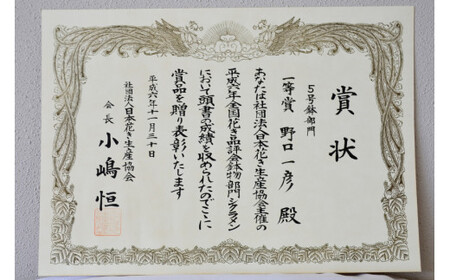 賞状
5号鉢部門
一等賞 野口一彦 殿
あなたは社団法人日本花き生産協会主催の
平成六年全国花き品評会鉢物部門シクラメン
において頭書の成績を収められたのでここに
賞品を贈り表彰いたします
平成六年十一月三十日
社団法人日本花き生産協会
会長 小嶋恒